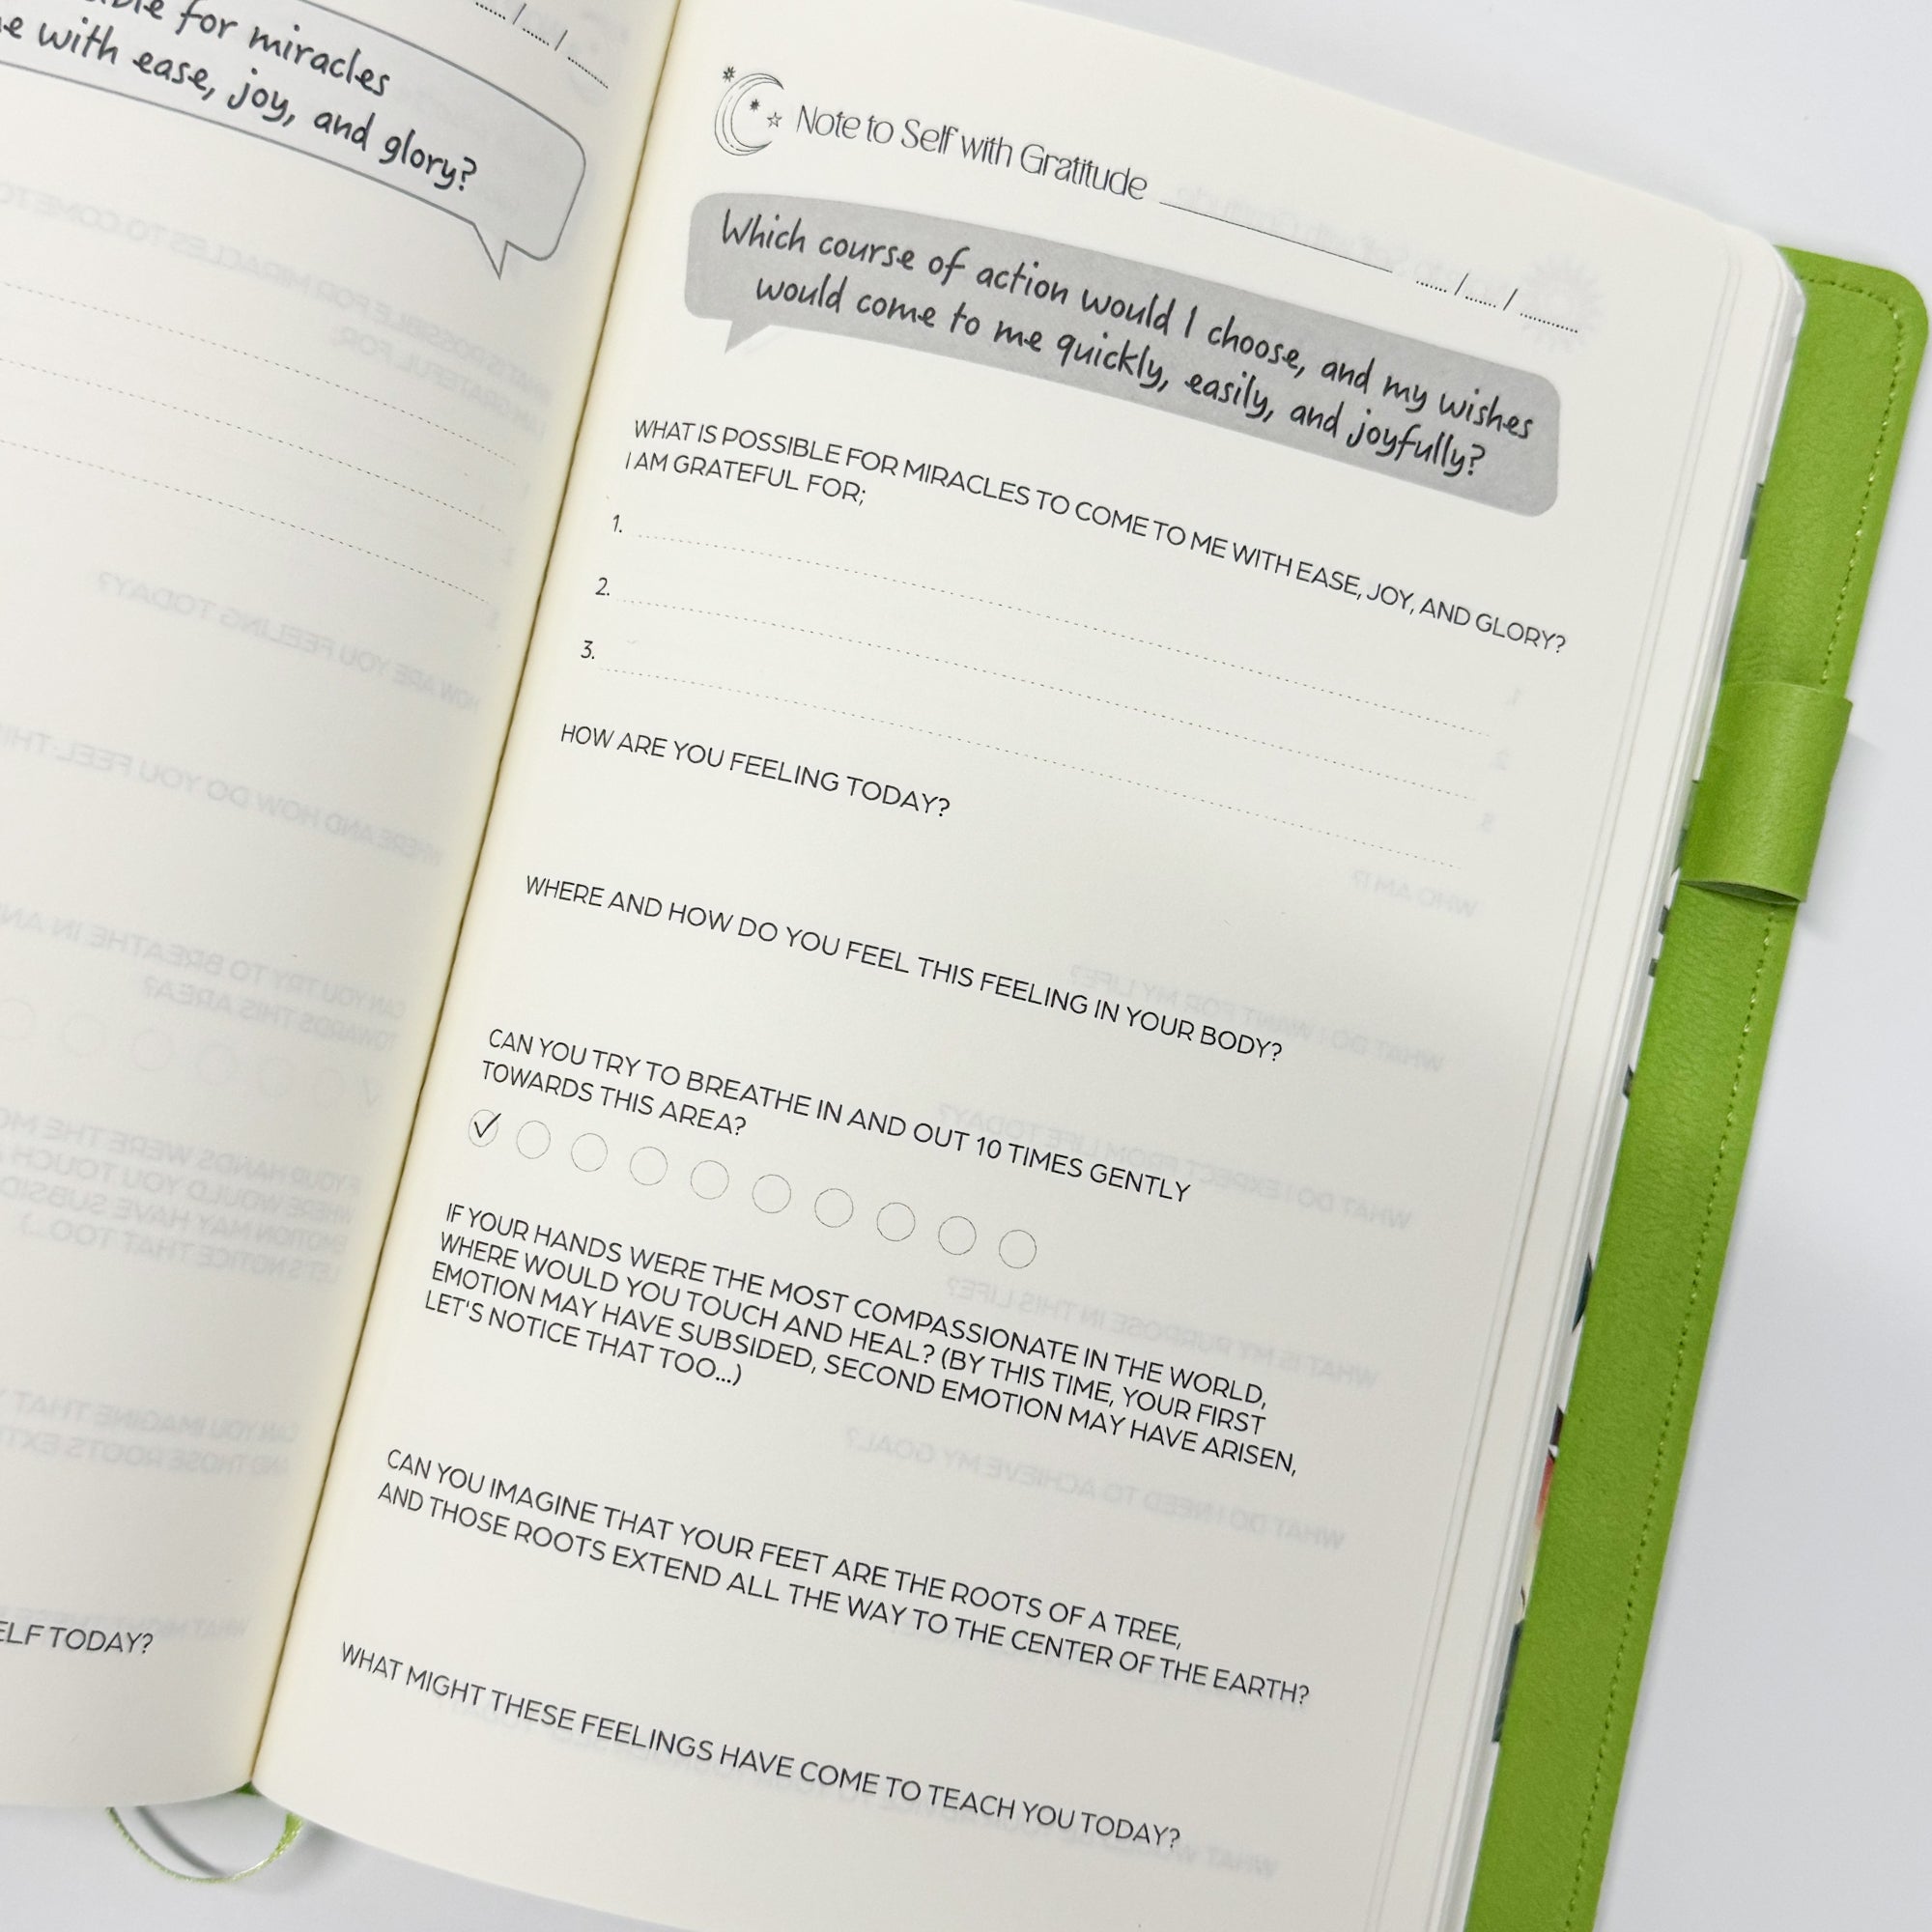 for miracles
with ease, joy, and glory?
ELF TODAY?
Note to Self with Gratitude
Which course of action would I choose, and my wishes
would come to me quickly, easily, and joyfully?
WHAT IS POSSIBLE FOR MIRACLES TO COME TO ME WITH EASE, JOY, AND GLORY?
I AM GRATEFUL FOR;
1.
2.
3.
HOW ARE YOU FEELING TODAY?
WHERE AND HOW DO YOU FEEL THIS FEELING IN YOUR BODY?
CAN YOU TRY TO BREATHE IN AND OUT 10 TIMES GENTLY
TOWARDS THIS AREA?
IF YOUR HANDS WERE THE MOST COMPASSIONATE IN THE WORLD,
WHERE WOULD YOU TOUCH AND HEAL? (BY THIS TIME, YOUR FIRST
EMOTION MAY HAVE SUBSIDED, SECOND EMOTION MAY HAVE ARISEN,
LET'S NOTICE THAT TOO...)
CAN YOU IMAGINE THAT YOUR FEET ARE THE ROOTS OF A TREE,
AND THOSE ROOTS EXTEND ALL THE WAY TO THE CENTER OF THE EARTH?
WHAT MIGHT THESE FEELINGS HAVE COME TO TEACH YOU TODAY?